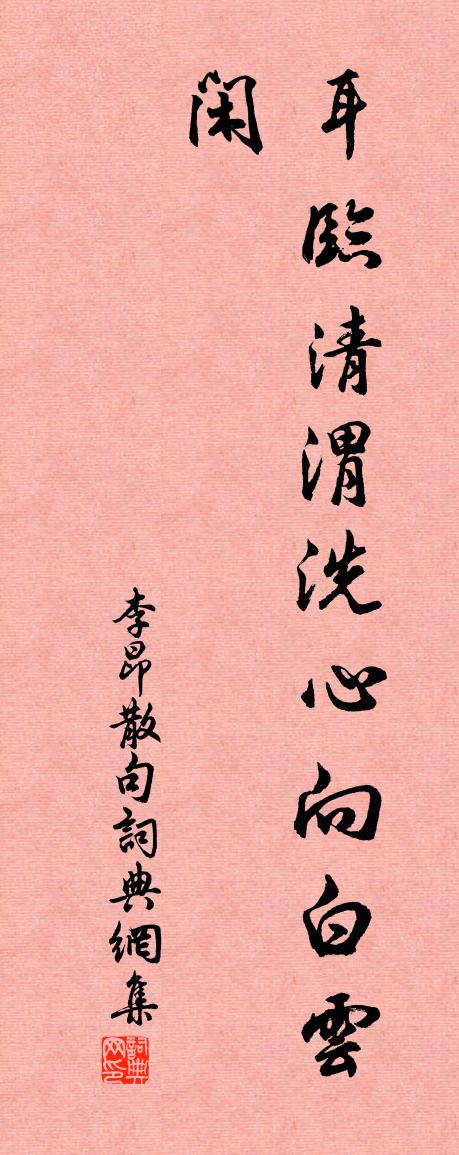 耳臨清渭洗心向白雲
閑
李昂散句詞典網集
詞典網印